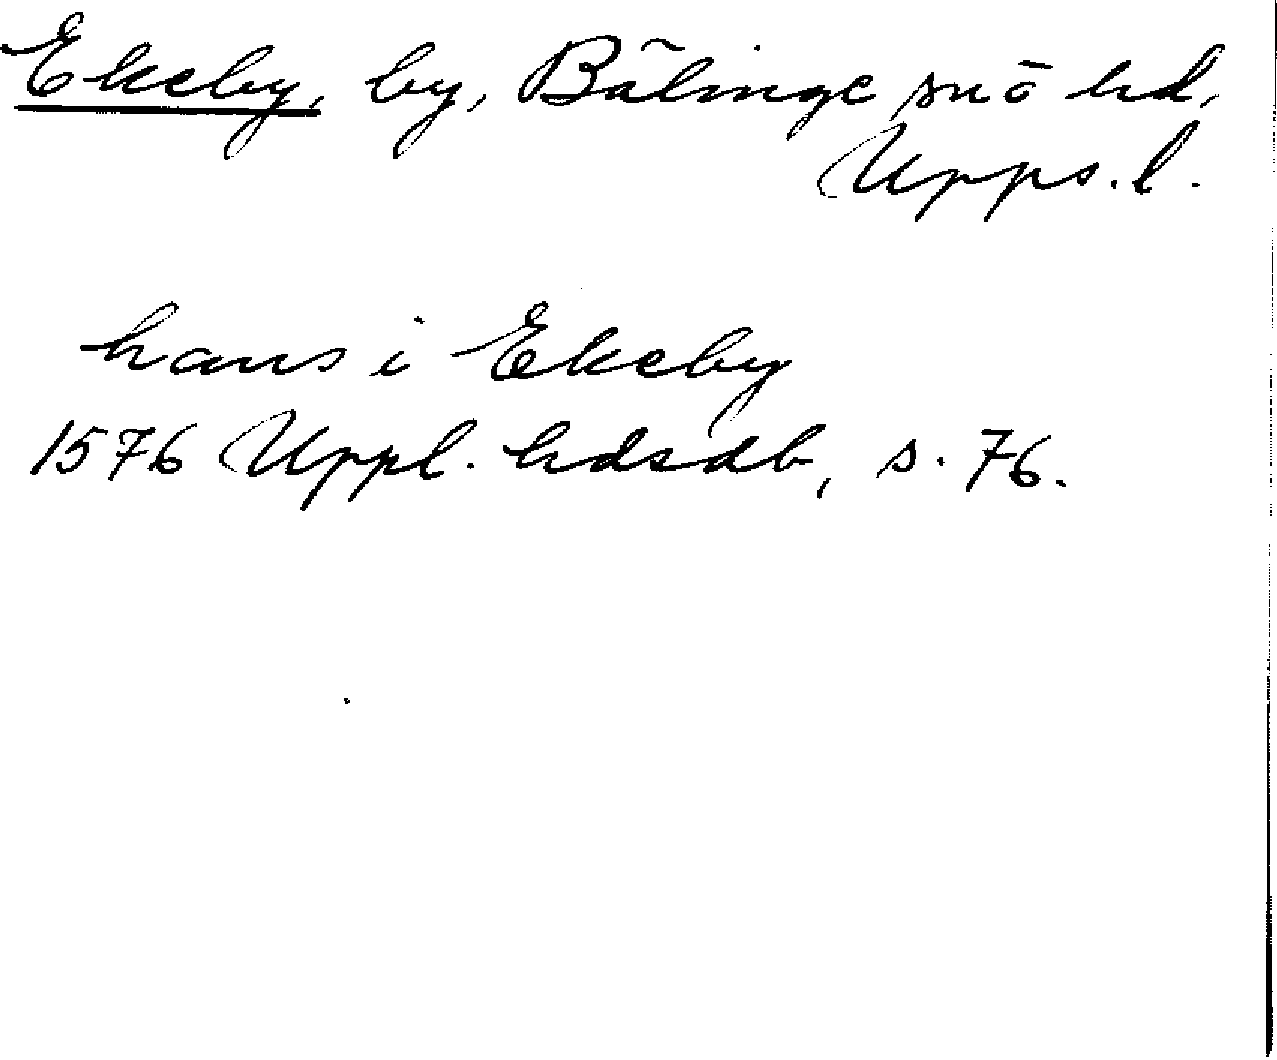 Ekeby, by, Bälinge sn ō hd,
Upps. l.
hans i Ekeby
1576 Uppl. hdsdb, s. 76.